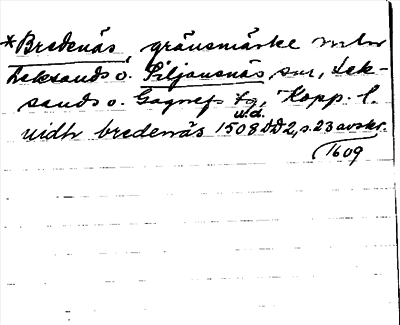 *Bredenäs, gränsmärke mellan
Leksands o. Siljansnäs snr, Lek-
sands o. Gagnefs tg, Kopp. l.
vidh bredenäs 1508 DD2, s. 23 avskr.
u.d.
1609